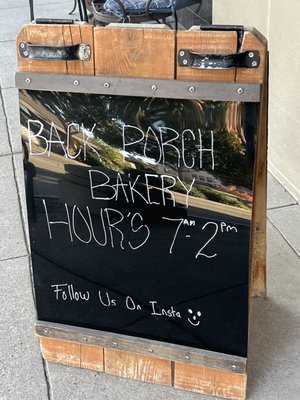 BACK PORCH
BAKERY
HOUR'S 7am-2pm
Follow Us On Insta